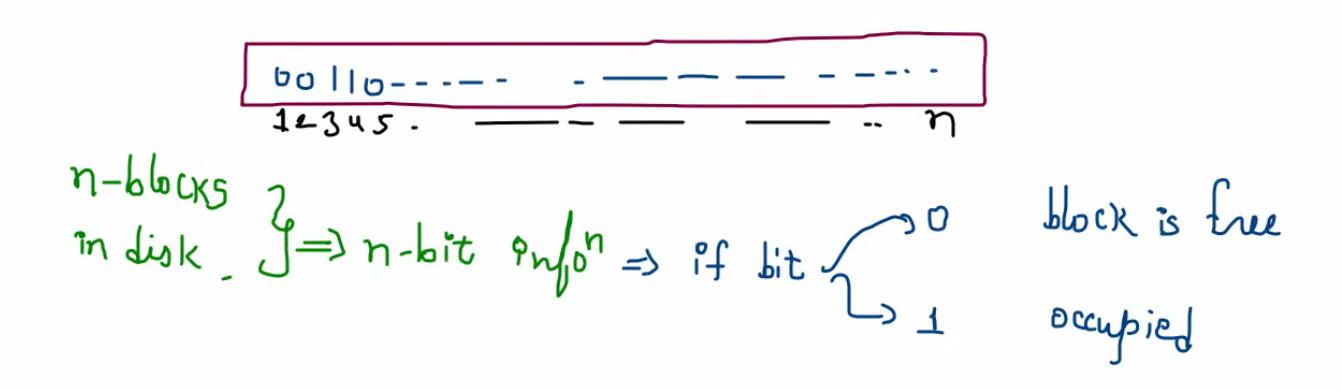 00110------ - — — — - ---·· -
12345 . — - — — -- n
n-blocks
in disk. } ⇒ n-bit infoⁿ ⇒ if bit
0 block is free
1 occupied